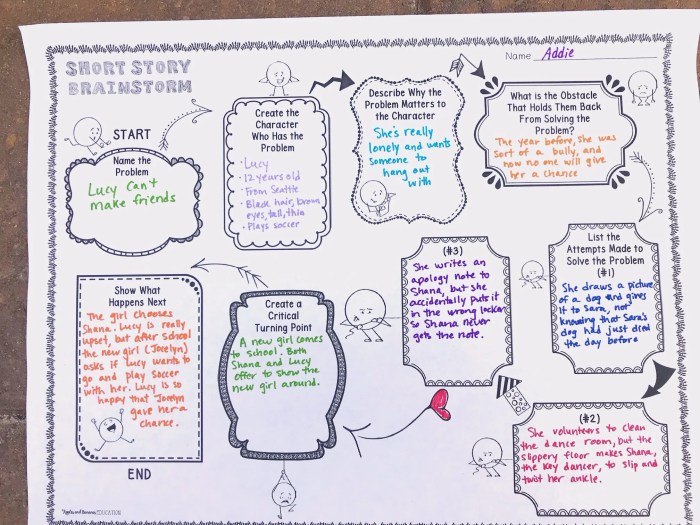 Name Addie
SHORT STORY
BRAINSTORM
START
Name the
Problem
Lucy can't
make friends
Create the
Character
Who Has the
Problem
• Lucy
• 12 years old
• From Seattle
• Black hair, brown
eyes, tall, thin
• Plays soccer
Describe Why the
Problem Matters to
the Character
She's really
lonely and wants
someone to
hang out
with
What is the Obstacle
That Holds Them Back
From Solving the
Problem?
The year before, she was
sort of a bully, and
now no one will give
her a chance
List the
Attempts Made to
Solve the Problem
(#1)
She draws a picture
of a dog and gives
it to Sara, not
knowing that Sara's
dog had just died
the day before
(#2)
She volunteers to clean
the dance room, but the
slippery floor makes Shana,
the key dancer, to slip and
twist her ankle.
(#3)
She writes an
apology note to
Shana, but she
accidentally puts it
in the wrong locker
so Shana never
gets the note.
Create a
Critical
Turning Point
A new girl comes
to school. Both
Shana and Lucy
offer to show the
new girl around.
Show What
Happens Next
The girl chooses
Shana. Lucy is really
upset, but after school
the new girl (Jocelyn)
asks if Lucy wants to
go and play soccer
with her. Lucy is so
happy that Jocelyn
gave her a
chance.
END